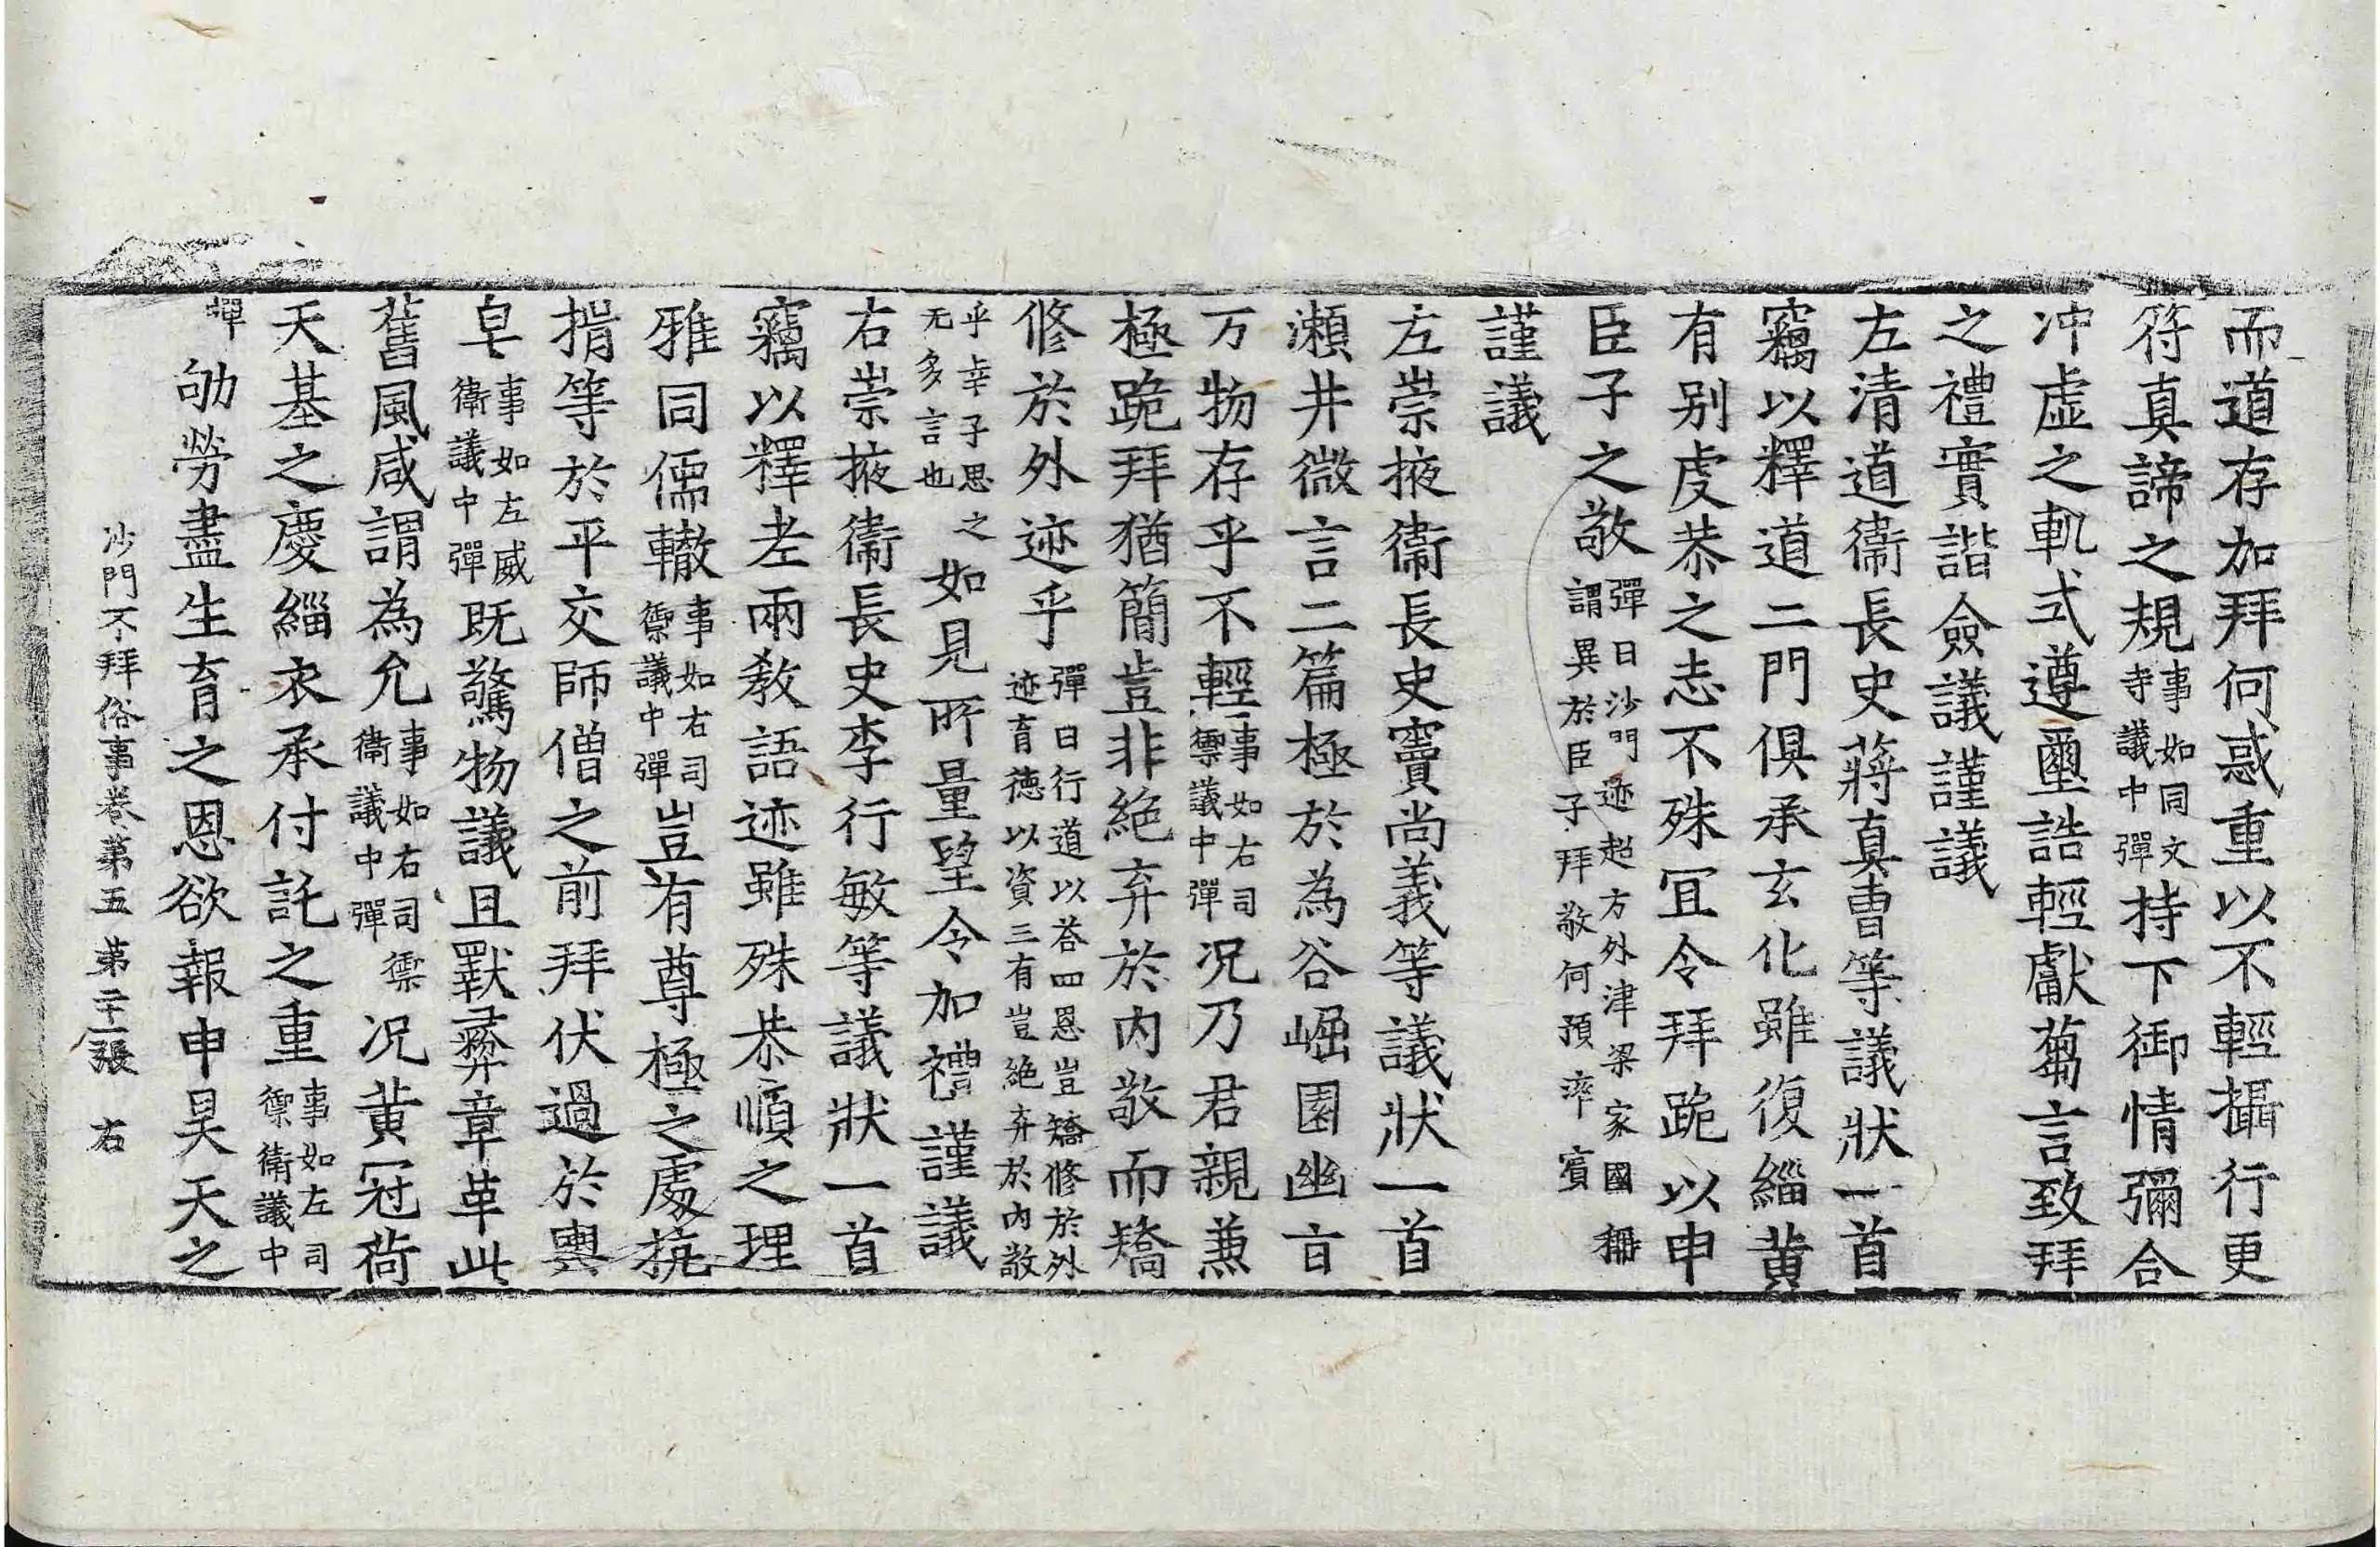 而道存加拜何惑重以不輕攝行更
符真諦之規事如同文寺議中彈持下御情彌合
冲虛之軌式遵璽誥輕獻蒭言致拜
之禮實諧僉議謹議
左清道衞長史蔣真曺等議狀一首
竊以釋道二門俱承玄化雖復緇黃
有別虔恭之志不殊冝令拜跪以申
臣子之敬彈曰沙門迹超方外津梁家國稱謂異於臣子拜敬何預率賓
謹議
左崇掖衞長史竇尚義等議狀一首
瀨井微言二篇極於為谷崛園幽㫖
万物存乎不輕事如右司禦議中彈況乃君親兼
極跪拜猶簡豈非絶弃於內敬而矯
修於外迹乎彈曰行道以荅四恩豈矯修於外迹育德以資三有豈絶弃於內敬
乎幸子思之无多言也如見所量望令加禮謹議
右崇掖衞長史李行敏等議狀一首
竊以釋老兩教語迹雖殊恭順之理
雅同儒轍事如右司禦議中彈豈有尊極之處抗
揖等於平交師僧之前拜伏過於輿
皁事如左威衞議中彈旣驚物議且斁彜章革此
舊風咸謂為允事如右司禦衞議中彈況黃冠荷
天基之慶緇衣承付託之重事如左司禦衞議中
彈劬勞盡生育之恩欲報申昊天之
沙門不拜俗事卷第五 第二十一張 右